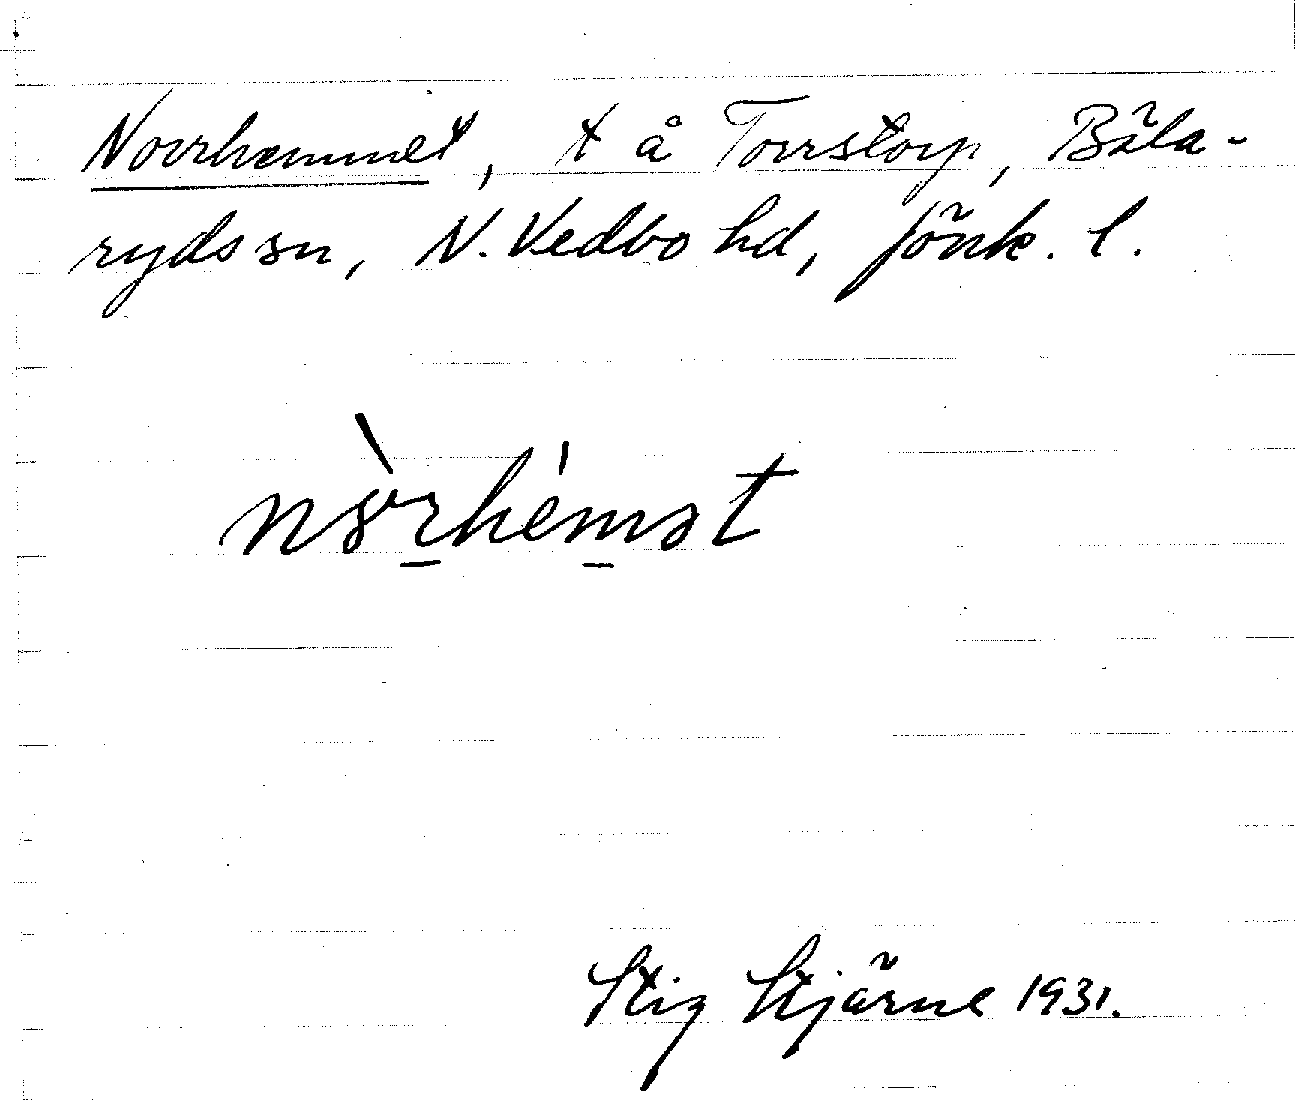 Norrhemmet, t å Torrstorp, Bäla-
ryds sn, N. Vedbo hd, Jönk. l.
nòrhémət
Stig Stjärne 1931.